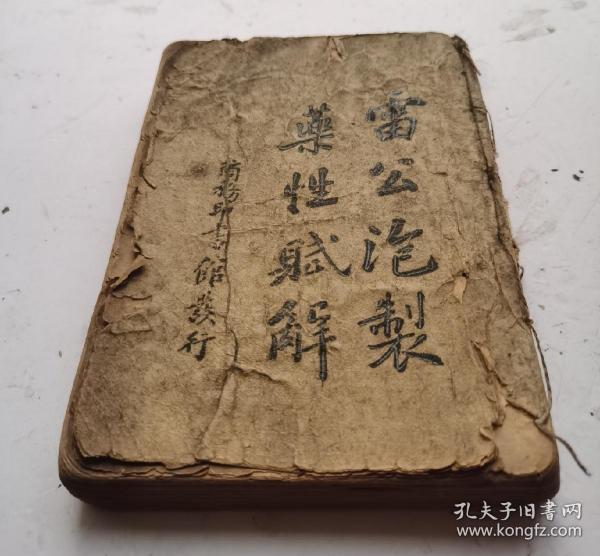 雷公炮製
藥性賦解
商務印書館發行
孔夫子旧书网
www.kongfz.com